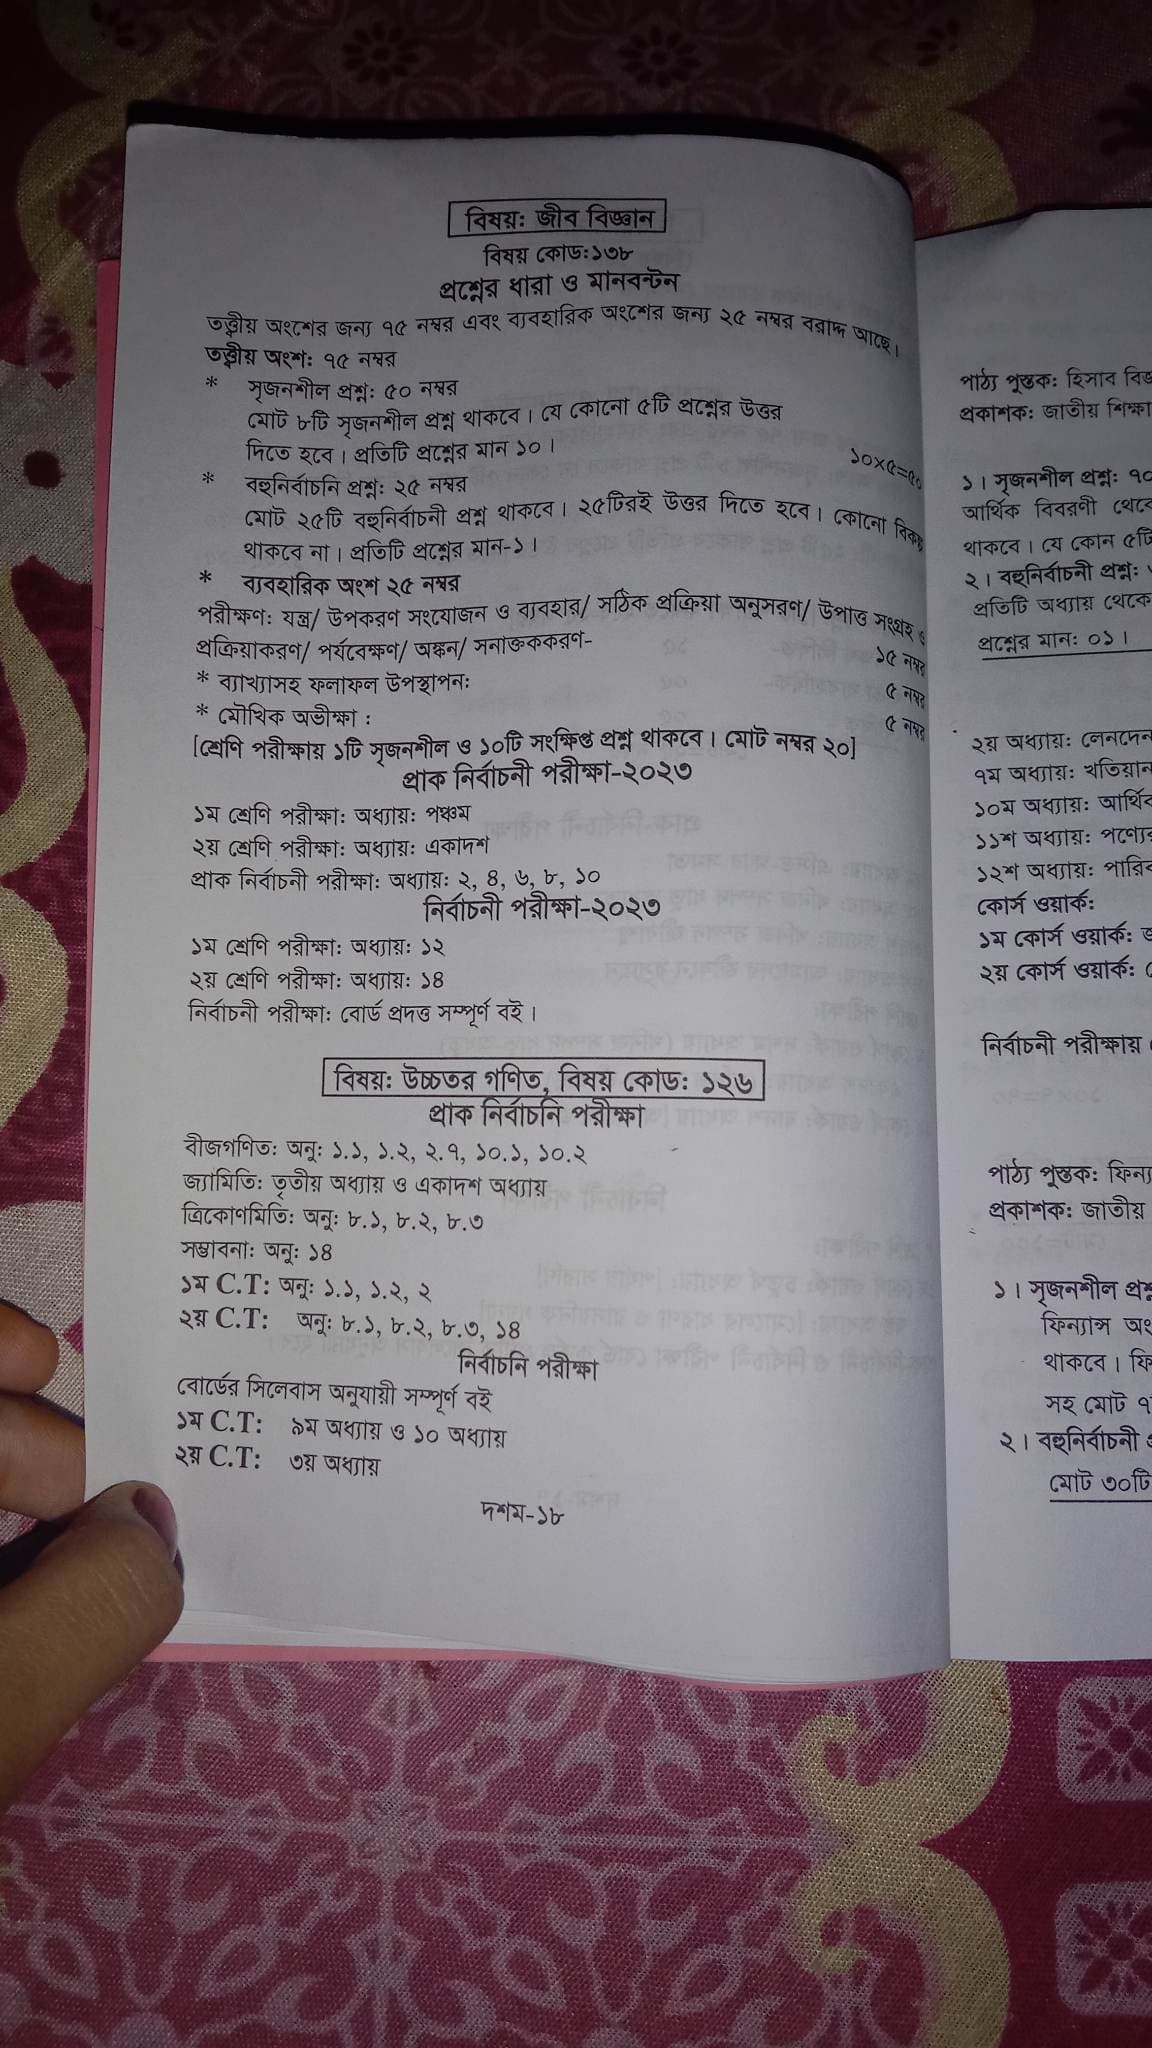 বিষয়: জীব বিজ্ঞান
বিষয় কোড:১৩৮
প্রশ্নের ধারা ও মানবন্টন
তত্ত্বীয় অংশের জন্য ৭৫ নম্বর এবং ব্যবহারিক অংশের জন্য ২৫ নম্বর বরাদ্দ আছে।
তত্ত্বীয় অংশ: ৭৫ নম্বর
* সৃজনশীল প্রশ্ন: ৫০ নম্বর
মোট ৮টি সৃজনশীল প্রশ্ন থাকবে। যে কোনো ৫টি প্রশ্নের উত্তর
দিতে হবে। প্রতিটি প্রশ্নের মান ১০। ১০×৫=৫০
* বহুনির্বাচনি প্রশ্ন: ২৫ নম্বর
মোট ২৫টি বহুনির্বাচনী প্রশ্ন থাকবে। ২৫টিরই উত্তর দিতে হবে। কোনো বিকল্প
থাকবে না। প্রতিটি প্রশ্নের মান-১।
* ব্যবহারিক অংশ ২৫ নম্বর
পরীক্ষণ: যন্ত্র/ উপকরণ সংযোজন ও ব্যবহার/ সঠিক প্রক্রিয়া অনুসরণ/ উপাত্ত সংগ্রহ ও
প্রক্রিয়াকরণ/ পর্যবেক্ষণ/ অঙ্কন/ সনাক্তককরণ- ১৫ নম্বর
* ব্যাখ্যাসহ ফলাফল উপস্থাপন: ৫ নম্বর
* মৌখিক অভীক্ষা : ৫ নম্বর
[শ্রেণি পরীক্ষায় ১টি সৃজনশীল ও ১০টি সংক্ষিপ্ত প্রশ্ন থাকবে। মোট নম্বর ২০]
প্রাক নির্বাচনী পরীক্ষা-২০২৩
১ম শ্রেণি পরীক্ষা: অধ্যায়: পঞ্চম
২য় শ্রেণি পরীক্ষা: অধ্যায়: একাদশ
প্রাক নির্বাচনী পরীক্ষা: অধ্যায়: ২, ৪, ৬, ৮, ১০
নির্বাচনী পরীক্ষা-২০২৩
১ম শ্রেণি পরীক্ষা: অধ্যায়: ১২
২য় শ্রেণি পরীক্ষা: অধ্যায়: ১৪
নির্বাচনী পরীক্ষা: বোর্ড প্রদত্ত সম্পূর্ণ বই।
বিষয়: উচ্চতর গণিত, বিষয় কোড: ১২৬
প্রাক নির্বাচনি পরীক্ষা
বীজগণিত: অনু: ১.১, ১.২, ২.৭, ১০.১, ১০.২
জ্যামিতি: তৃতীয় অধ্যায় ও একাদশ অধ্যায়
ত্রিকোণমিতি: অনু: ৮.১, ৮.২, ৮.৩
সম্ভাবনা: অনু: ১৪
১ম C.T: অনু: ১.১, ১.২, ২
২য় C.T: অনু: ৮.১, ৮.২, ৮.৩, ১৪
নির্বাচনি পরীক্ষা
বোর্ডের সিলেবাস অনুযায়ী সম্পূর্ণ বই
১ম C.T: ৯ম অধ্যায় ও ১০ অধ্যায়
২য় C.T: ৩য় অধ্যায়
দশম-১৮
পাঠ্য পুস্তক: হিসাব
প্রকাশক: জাতীয় শিক্ষা
১। সৃজনশীল প্রশ্ন: ৭০
আর্থিক বিবরণী থেকে
থাকবে। যে কোন ৫টি
২। বহুনির্বাচনী প্রশ্ন:
প্রতিটি অধ্যায় থেকে
প্রশ্নের মান: ০১।
২য় অধ্যায়: লেনদেন
৭ম অধ্যায়: খতিয়ান
১০ম অধ্যায়: আর্থিক
১১শ অধ্যায়: পণ্যের
১২শ অধ্যায়:
কোর্স ওয়ার্ক:
১ম কোর্স ওয়ার্ক:
২য় কোর্স ওয়ার্ক:
নির্বাচনী পরীক্ষায়
পাঠ্য পুস্তক:
প্রকাশক: জাতীয়
১। সৃজনশীল প্রশ্ন
ফিন্যান্স
থাকবে।
সহ মোট
২। বহুনির্বাচনী
মোট ৩০টি